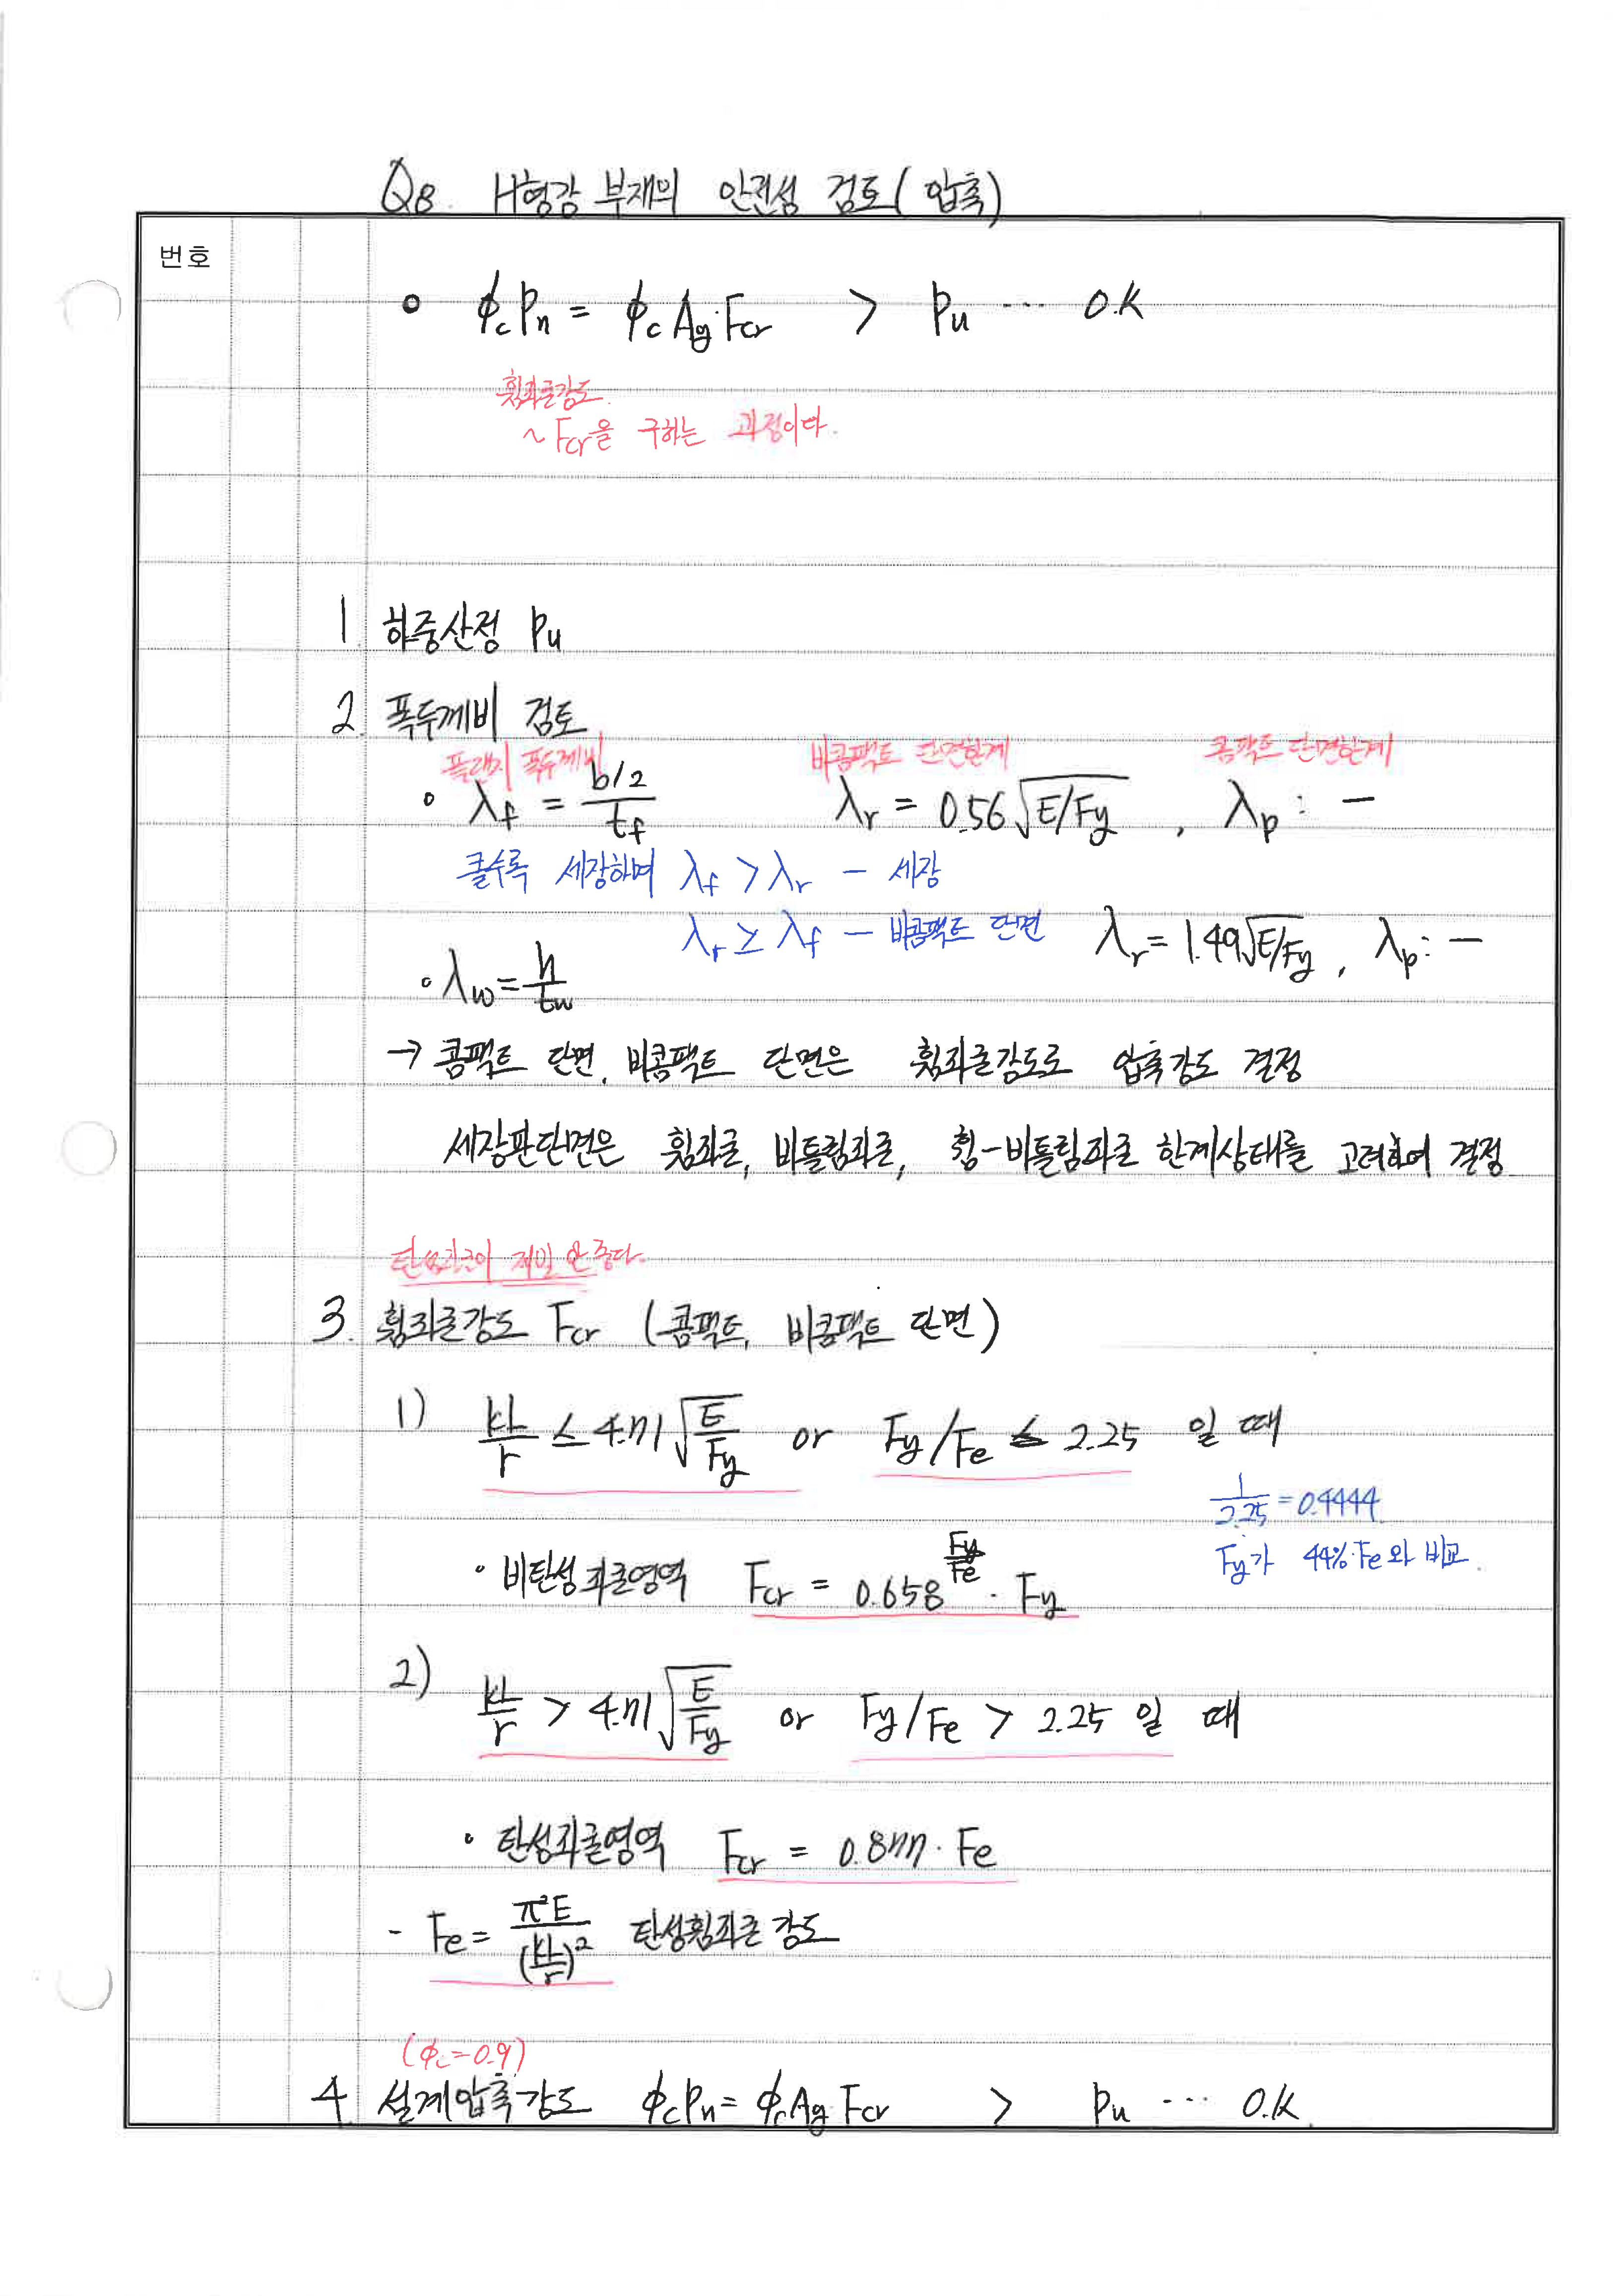 Q8. H형강 부재의 안전성 검토 (압축)
번호
o ϕcPn = ϕc Ag·Fcr > Pu ··· O.K
휨좌굴강도
~ Fcr을 구하는 과정이다.
1. 하중산정 Pu
2. 폭두께비 검토
플랜지 폭두께비 비콤팩트 단면한계 콤팩트 단면한계
∘ λf = (b/2)/tf λr = 0.56√(E/Fy) , λp : −
클수록 세장하며 λf > λr − 세장
λr ≥ λf − 비콤팩트 단면
∘ λw = h/tw λr = 1.49√(E/Fy) , λp : −
→ 콤팩트 단면, 비콤팩트 단면은 휨좌굴강도로 압축강도 결정
세장판단면은 휨좌굴, 비틀림좌굴, 휨-비틀림좌굴 한계상태를 고려하여 결정
탄성좌굴이 제일 안좋다.
3. 휨좌굴강도 Fcr (콤팩트, 비콤팩트 단면)
1) KL/r ≤ 4.71√(E/Fy) or Fy/Fe ≤ 2.25 일 때
1/2.25 = 0.4444
Fy가 44%·Fe와 비교.
· 비탄성좌굴영역 Fcr = 0.658^(Fy/Fe) · Fy
2) KL/r > 4.71√(E/Fy) or Fy/Fe > 2.25 일 때
· 탄성좌굴영역 Fcr = 0.877 · Fe
- Fe = π²E/(KL/r)² 탄성휨좌굴강도
(ϕc=0.9)
4. 설계압축강도 ϕcPn = ϕcAg Fcr > Pu ··· O.K.